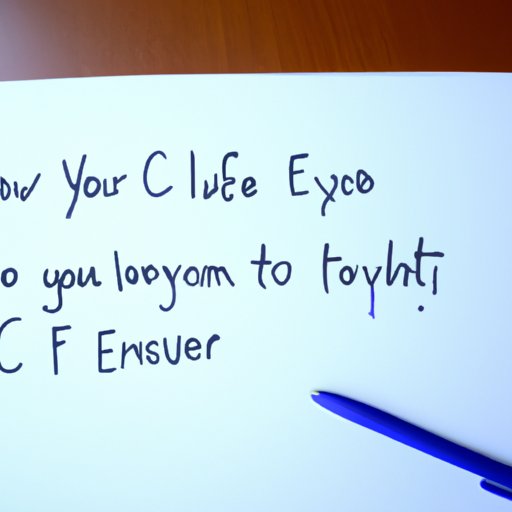 ow Your C lufe Eyco
o you looyom to toyht!
C F Ensuer